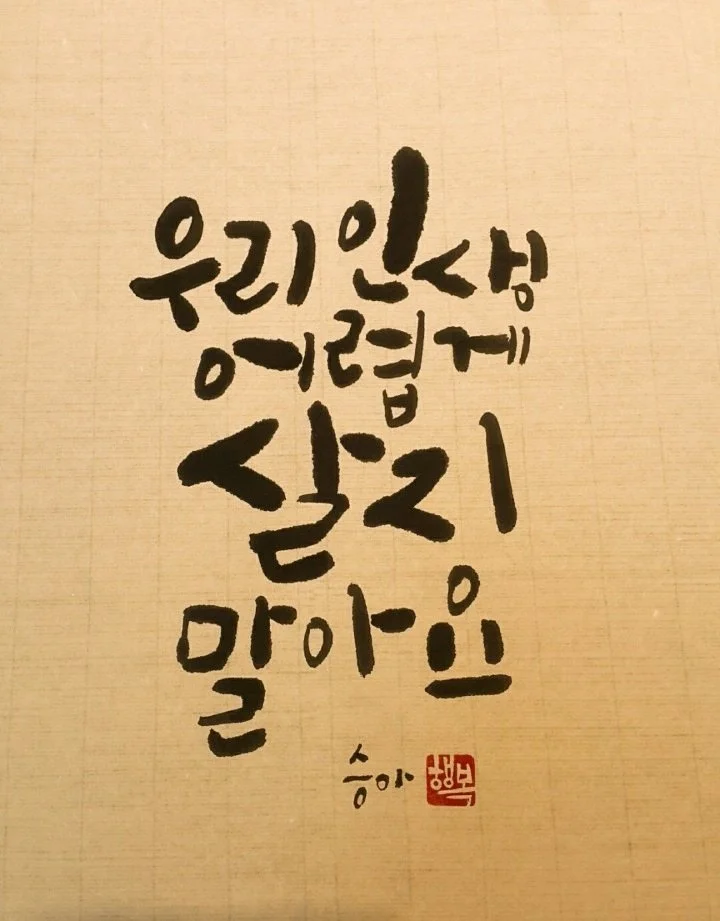 우리인생
어렵게
살지
말아요
승아 행복